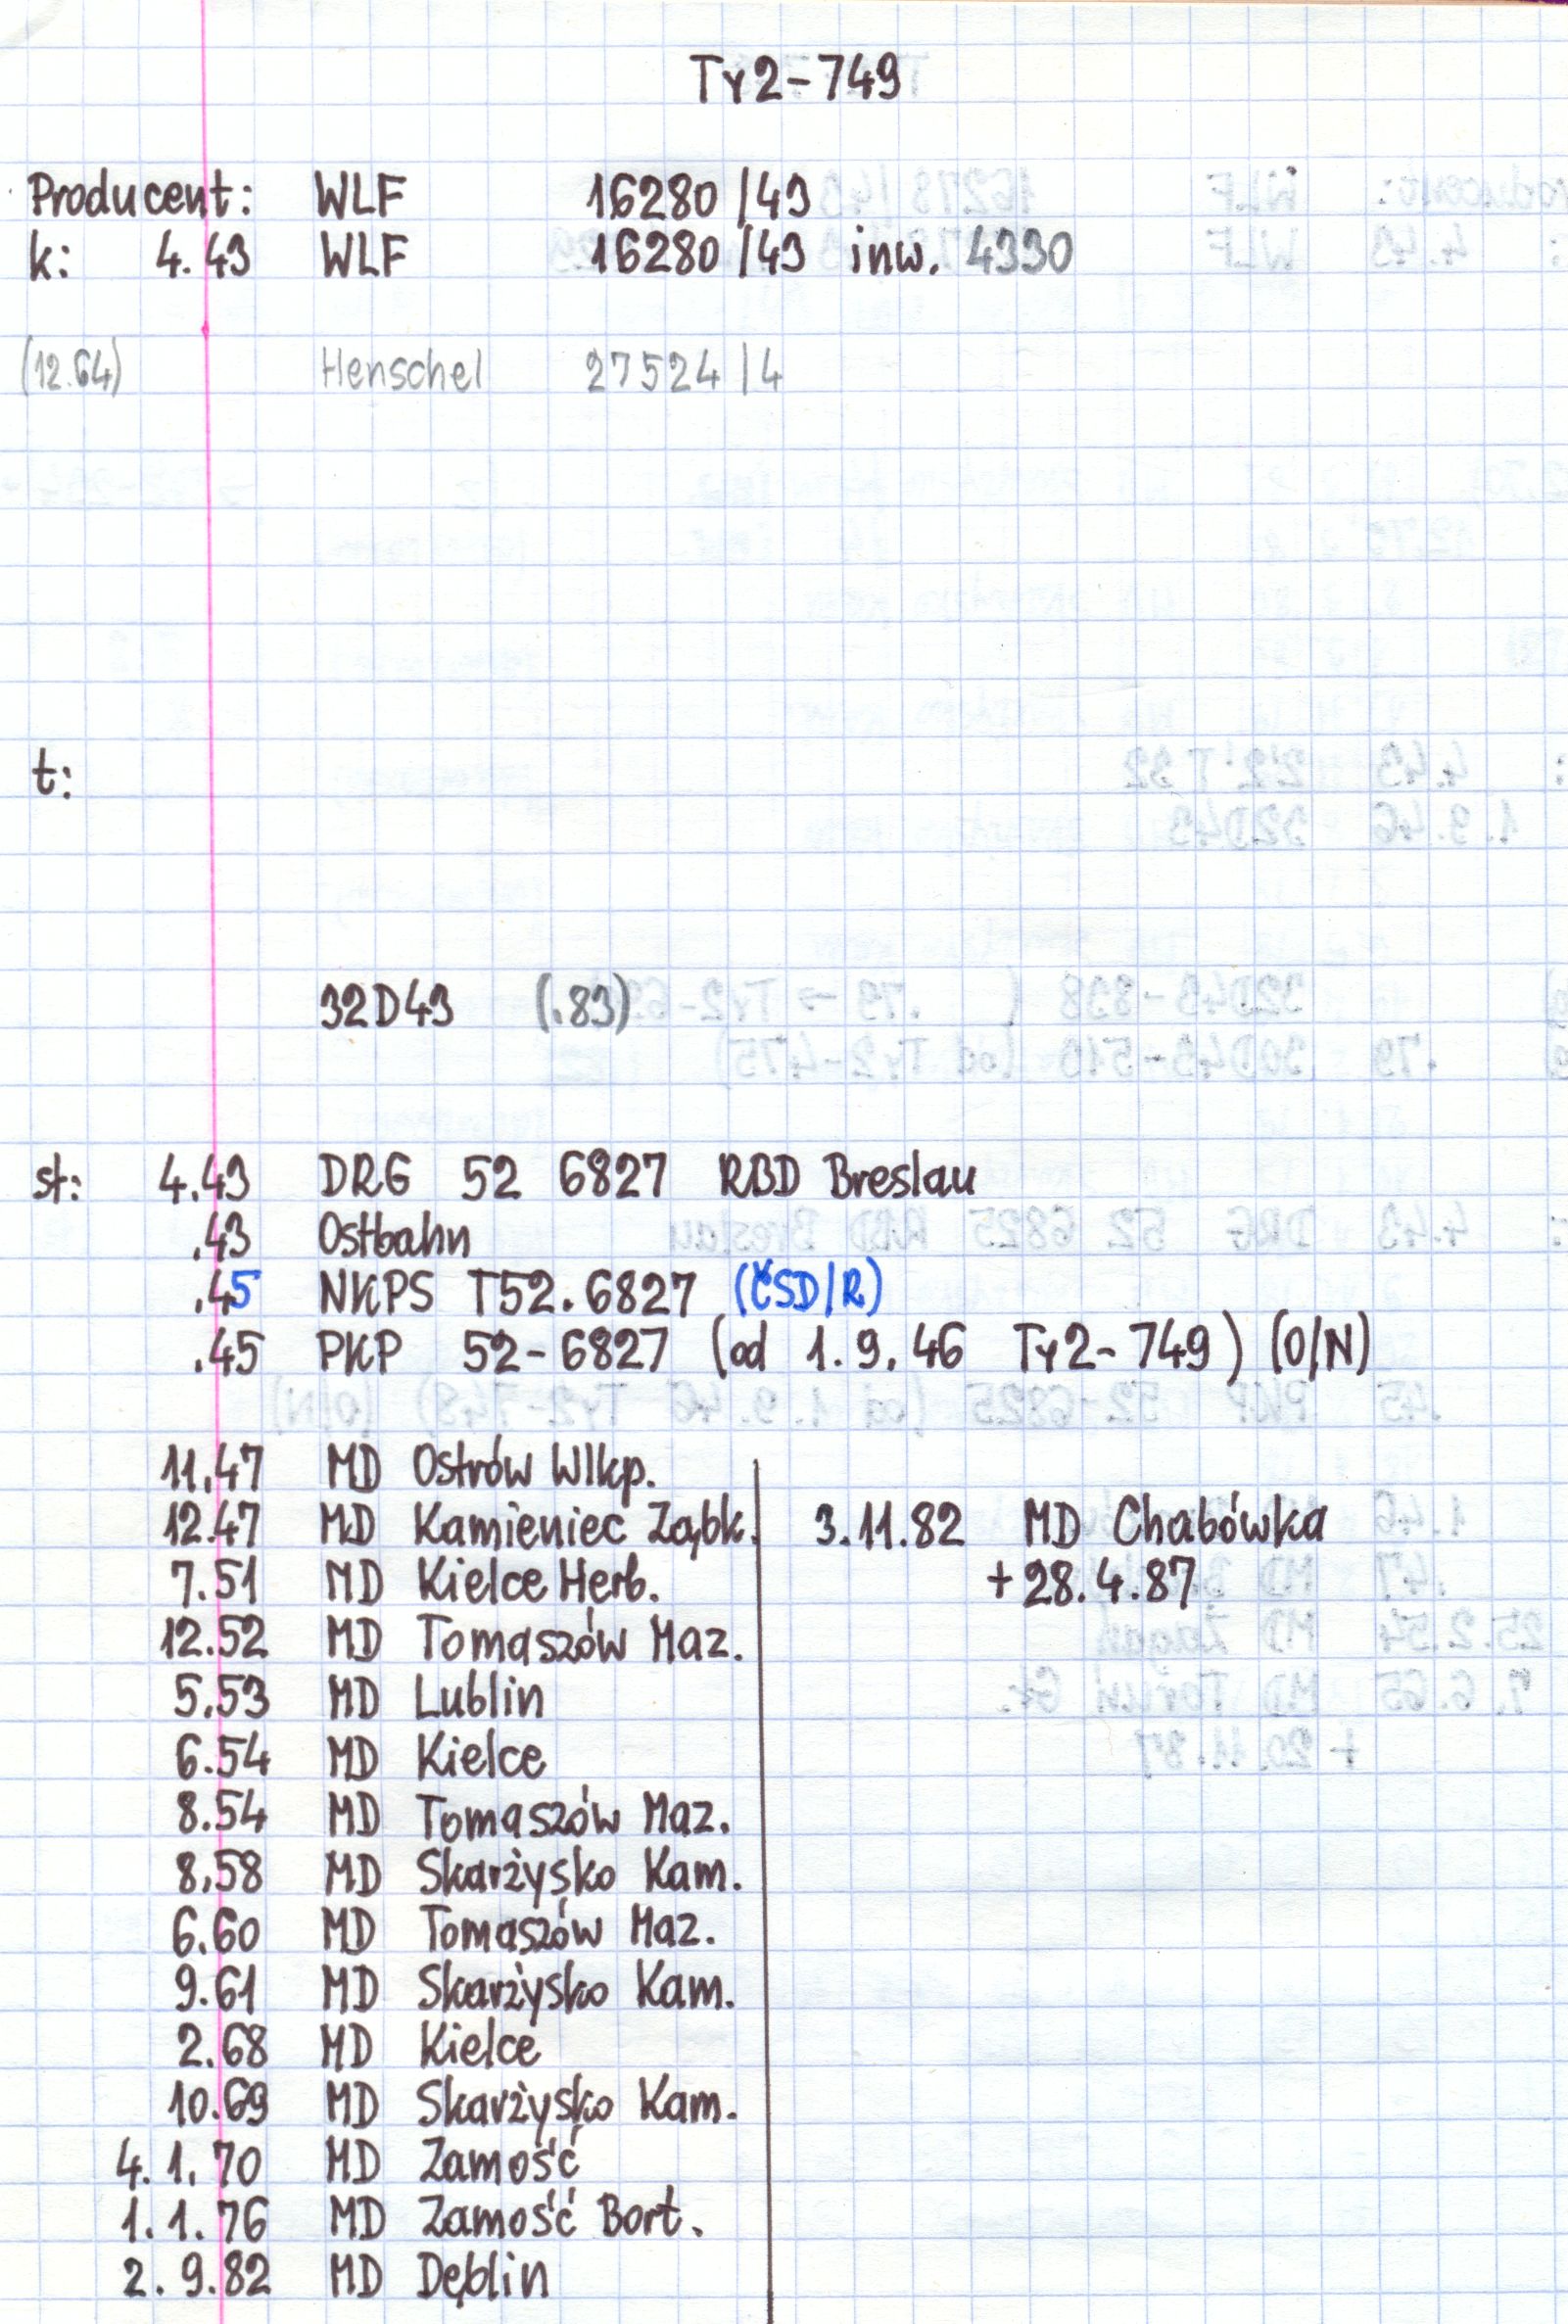 Ty2-749
Producent: WLF 16280/43
k: 4.43 WLF 16280/43 inw. 4330
(12.64) Henschel 27524/4
t:
32D43 (.83)
st: 4.43 DRG 52 6827 RBD Breslau
.43 Ostbahn
.45 NKPS T52.6827 (ČSD/R)
.45 PKP 52-6827 (od 1.9.46 Ty2-749) (O/N)
11.47 MD Ostrów Wlkp.
12.47 MD Kamieniec Ząbk.
7.51 MD Kielce Herb.
12.52 MD Tomaszów Maz.
5.53 MD Lublin
6.54 MD Kielce
8.54 MD Tomaszów Maz.
8.58 MD Skarżysko Kam.
6.60 MD Tomaszów Maz.
9.61 MD Skarżysko Kam.
2.68 MD Kielce
10.69 MD Skarżysko Kam.
4.1.70 MD Zamość
1.1.76 MD Zamość Bort.
2.9.82 MD Dęblin
3.11.82 MD Chabówka
+28.4.87